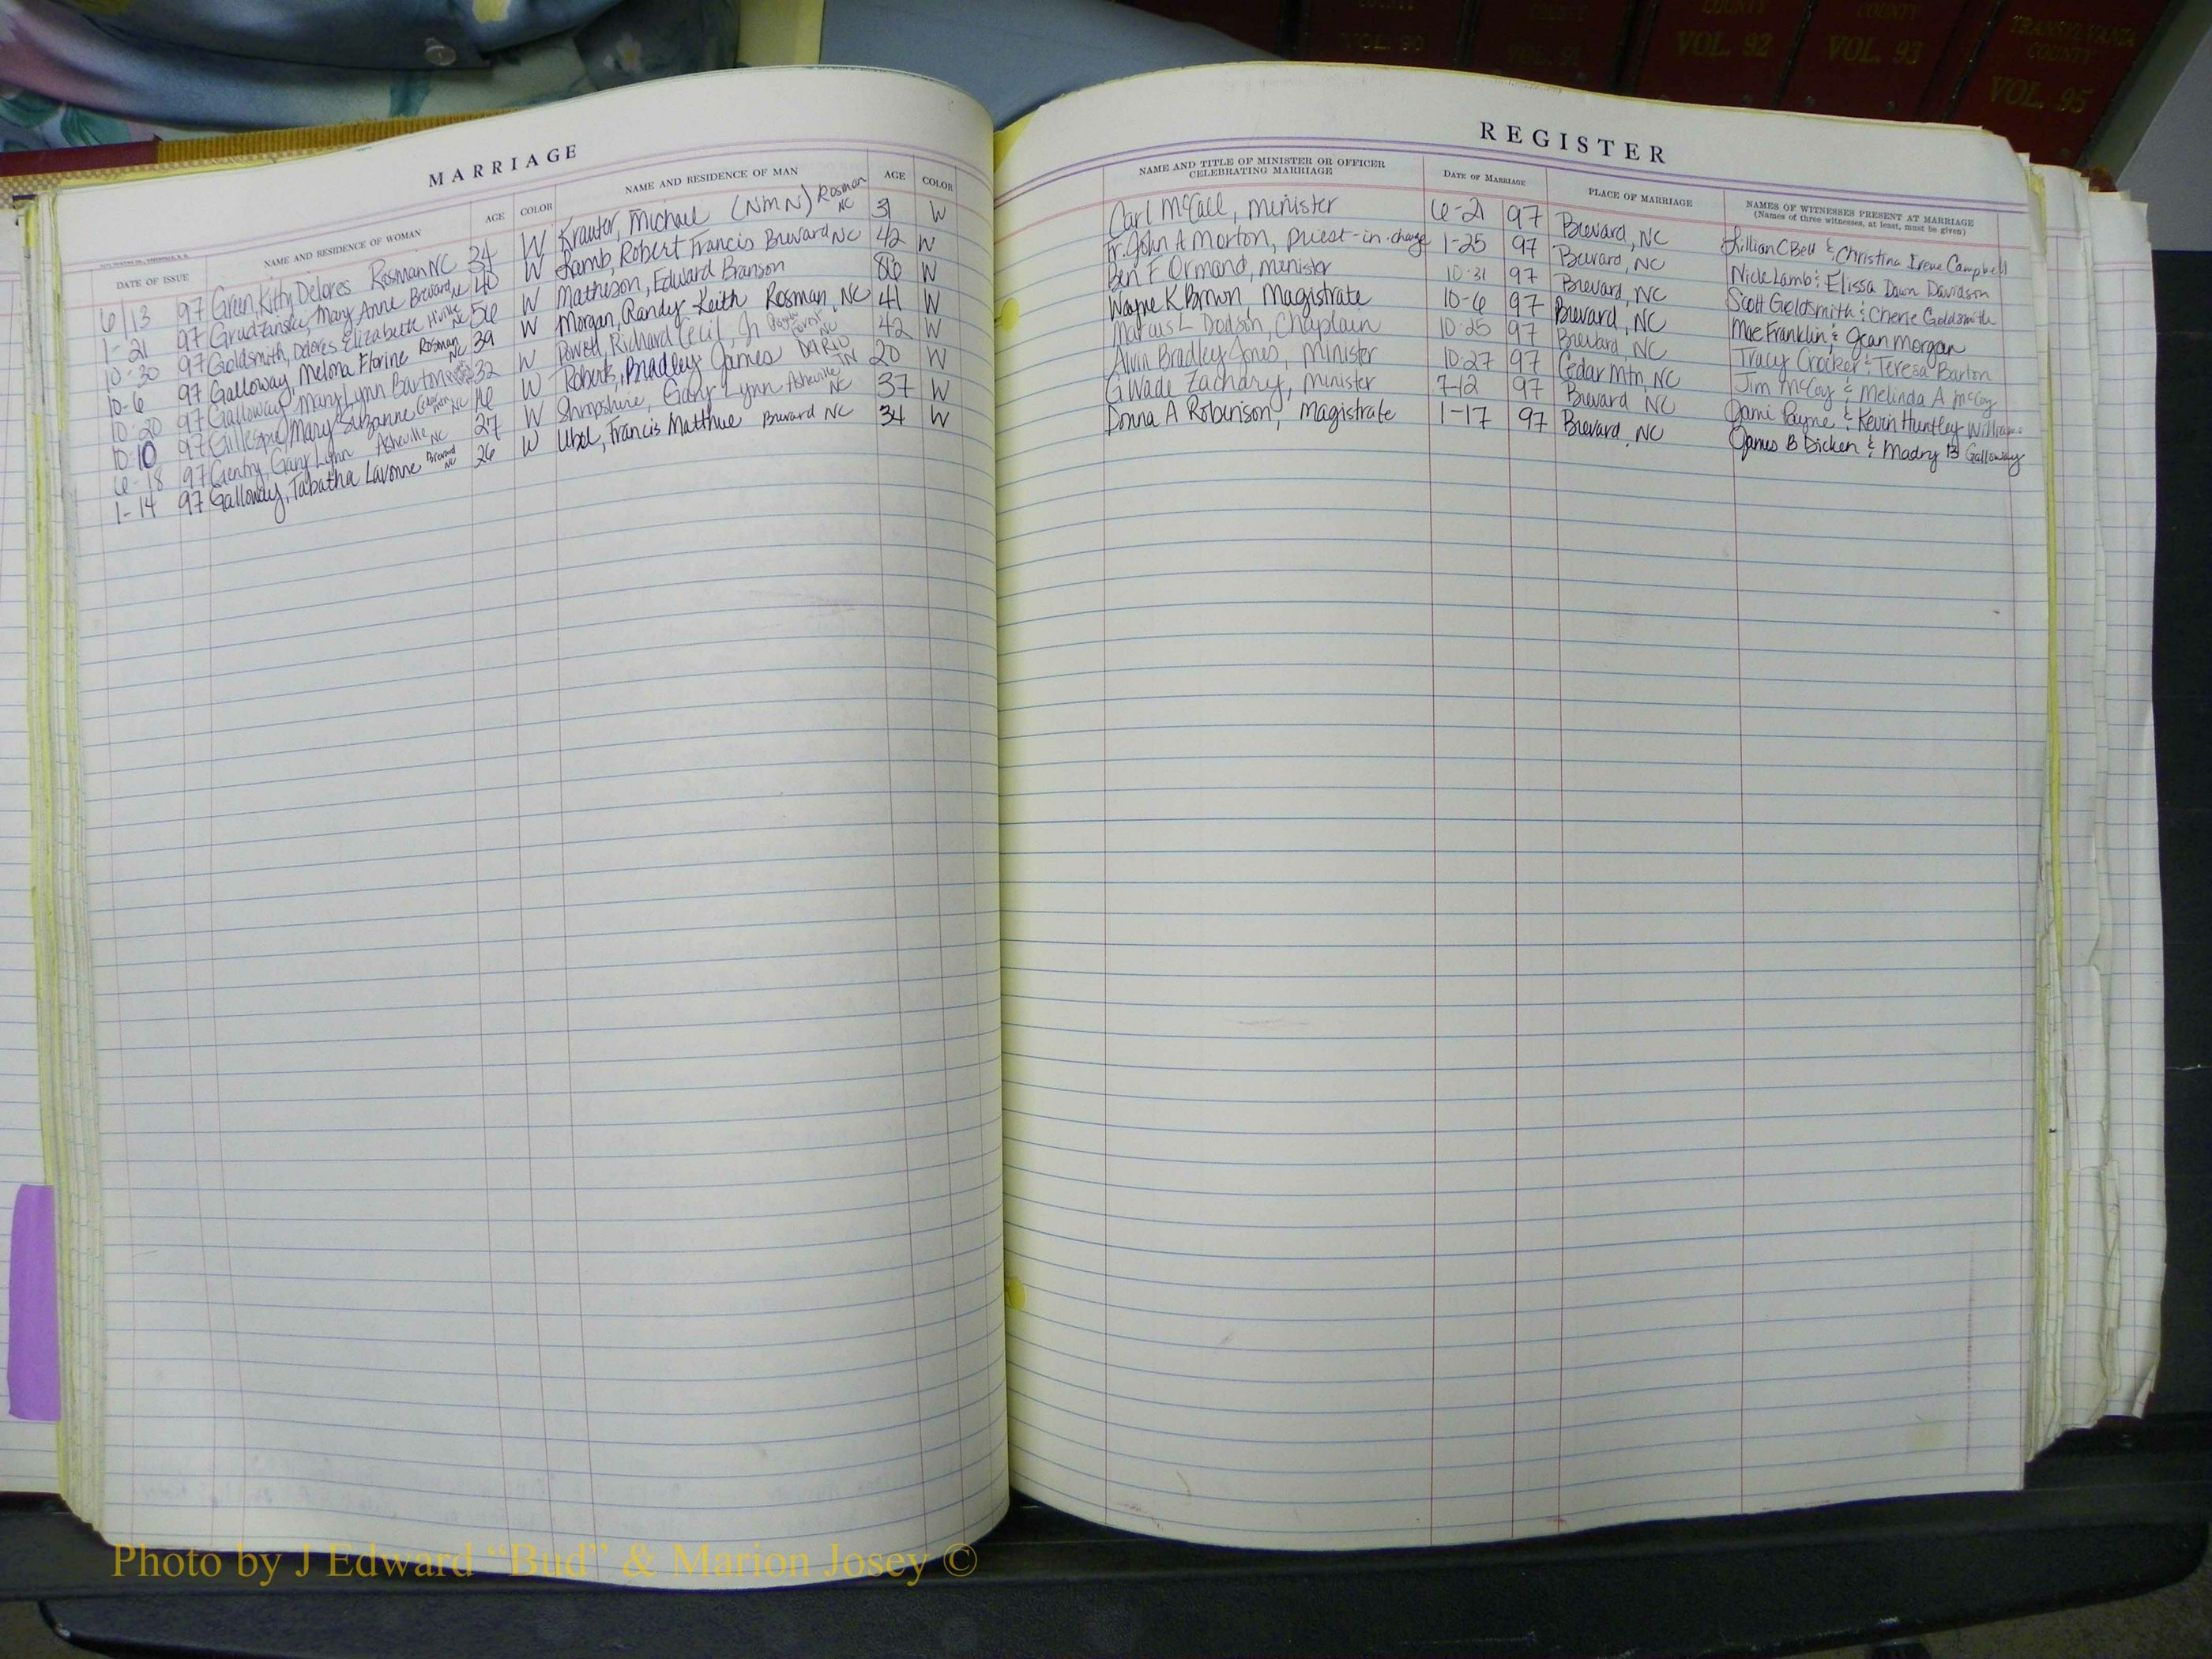 COUNTY
VOL. 90
COUNTY
VOL. 91
COUNTY
VOL. 92
COUNTY
VOL. 93
TRANSYLVANIA
COUNTY
VOL. 95
MARRIAGE
DATE OF ISSUE NAME AND RESIDENCE OF WOMAN AGE COLOR NAME AND RESIDENCE OF MAN AGE COLOR
6 13 97 Green, Kitty Delores Rosman NC 34 W Krauter, Michael (NMN) Rosman NC 31 W
1-21 97 Grudzinski, Mary Anne Brevard, NC 40 W Lamb, Robert Francis Brevard NC 42 W
10-30 97 Goldsmith, Delores Elizabeth Hville NC 56 W Matheson, Edward Branson 86 W
10-6 97 Galloway, Melona Florine Rosman NC 39 W Morgan, Randy Keith Rosman, NC 41 W
10-20 97 Galloway, Mary Lynn Barton 32 W Powell, Richard Cecil, Jr NC 42 W
10-10 97 Gillespie, Mary Suzanne Cedar Mtn NC W Roberts, Bradley James TN 20 W
6-18 97 Gentry, Gary Lynn Asheville NC 27 W Shropshire, Gary Lynn Asheville NC 37 W
1-14 97 Galloway, Tabatha Lavonne Brevard NC 26 W Ubol, Francis Matthue Brevard NC 34 W
REGISTER
NAME AND TITLE OF MINISTER OR OFFICER CELEBRATING MARRIAGE DATE OF MARRIAGE PLACE OF MARRIAGE NAMES OF WITNESSES PRESENT AT MARRIAGE
(Names of three witnesses, at least, must be given)
Carl McCall, minister 6-21 97 Brevard, NC Lillian C Bell & Christina Irene Campbell
Fr. John A Morton, priest-in-charge 1-25 97 Brevard, NC Nick Lamb & Elissa Dawn Davidson
Ben F Ormand, minister 10-31 97 Brevard, NC Scott Goldsmith & Cherie Goldsmith
Wayne K Brown, Magistrate 10-6 97 Brevard, NC Mae Franklin & Jean Morgan
Marcus L Dodson, Chaplain 10-25 97 Brevard, NC Tracy Crocker & Teresa Barton
Alvin Bradley Jones, Minister 10-27 97 Cedar Mtn, NC Jim McCoy & Melinda A McCoy
G Wade Zachary, minister 7-12 97 Brevard NC Jami Payne & Kevin Huntley Williams
Donna A Robinson, Magistrate 1-17 97 Brevard, NC James B Dicken & Madry B Galloway
Photo by J Edward “Bud” & Marion Josey ©